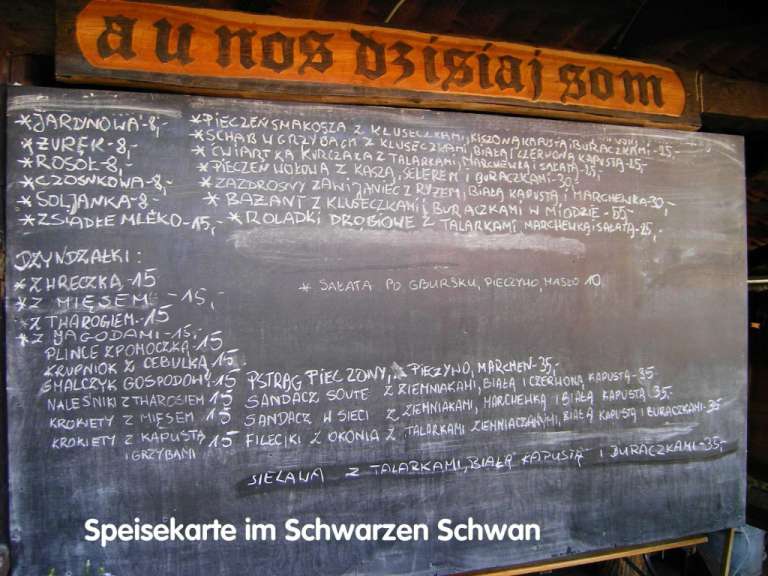 a u nos dzisiaj som
*JARDYNOWA-8,-
*ŻUREK-8,-
*ROSÓŁ-8,-
*CZOSNKOWA-8,-
*SOLJANKA-8,-
*ZSIADŁE MLEKO-15,-
*PIECZEŃ SMAKOSZA Z KLUSECZKAMI, KISZONĄ KAPUSTĄ I BURACZKAMI-25,-
*SCHAB W GRZYBACH Z KLUSECZKAMI, BIAŁĄ I CZERWONĄ KAPUSTĄ-25,-
*ĆWIARTKA KURCZAKA Z TALARKAMI, MARCHEWKĄ I SAŁATĄ-25,-
*PIECZEŃ WOŁOWA Z KASZĄ, SELEREM I BURACZKAMI-30,-
*ZAZDROSNY ZAWIJANIEC Z RYŻEM, BIAŁĄ KAPUSTĄ I MARCHEWKĄ-30,-
*BAŻANT Z KLUSECZKAMI I BURACZKAMI W MIODZIE-55,-
*ROLADKI DROBIOWE Z TALARKAMI, MARCHEWKĄ, SAŁATĄ-25,-
DZYNDZAŁKI:
*Z HRECZKĄ-15
*Z MIĘSEM-15,-
*Z THAROGIEM-15
*Z JAGODAMI-15,-
PLINCE Z POMOCZKĄ-15
KRUPNIOK Z CEBULKĄ 15
SMALCZYK GOSPODOWY 15
NALEŚNIKI Z THAROGIEM 15
KROKIETY Z MIĘSEM 15
KROKIETY Z KAPUSTĄ 15
I GRZYBAMI
* SAŁATA PO GBURSKU, PIECZYWO, MASŁO 10
PSTRĄG PIECZONY, PIECZYWO, MARCHEW-35,-
SANDACZ SOUTE Z ZIEMNIAKAMI, BIAŁĄ I CZERWONĄ KAPUSTĄ-35,-
SANDACZ W SIECI Z ZIEMNIAKAMI, MARCHEWKĄ I BIAŁĄ KAPUSTĄ 35,-
FILECIKI Z OKONIA Z TALARKAMI ZIEMNIACZANYMI, BIAŁĄ KAPUSTĄ I BURACZKAMI-35
SIELAWA Z TALARKAMI, BIAŁĄ KAPUSTĄ I BURACZKAMI-35,-
Speisekarte im Schwarzen Schwan